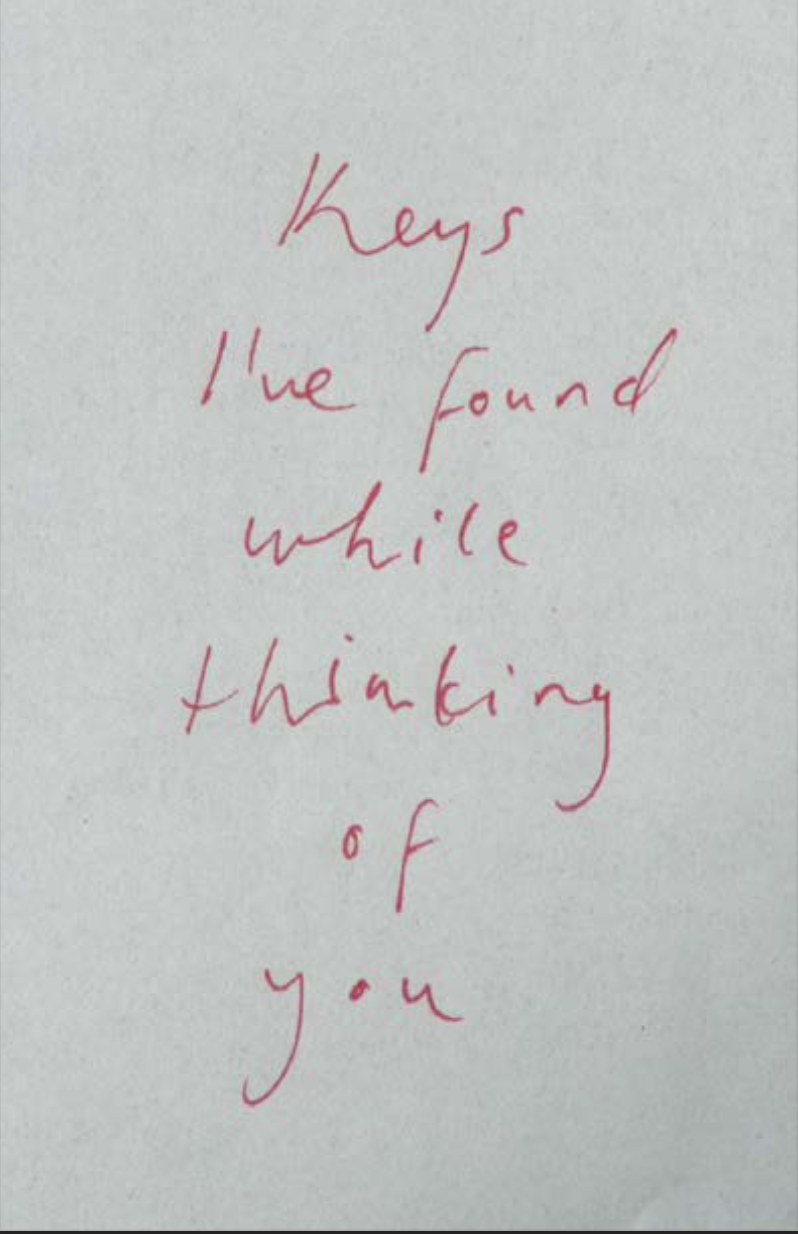 Keys
I've found
while
thinking
of
you